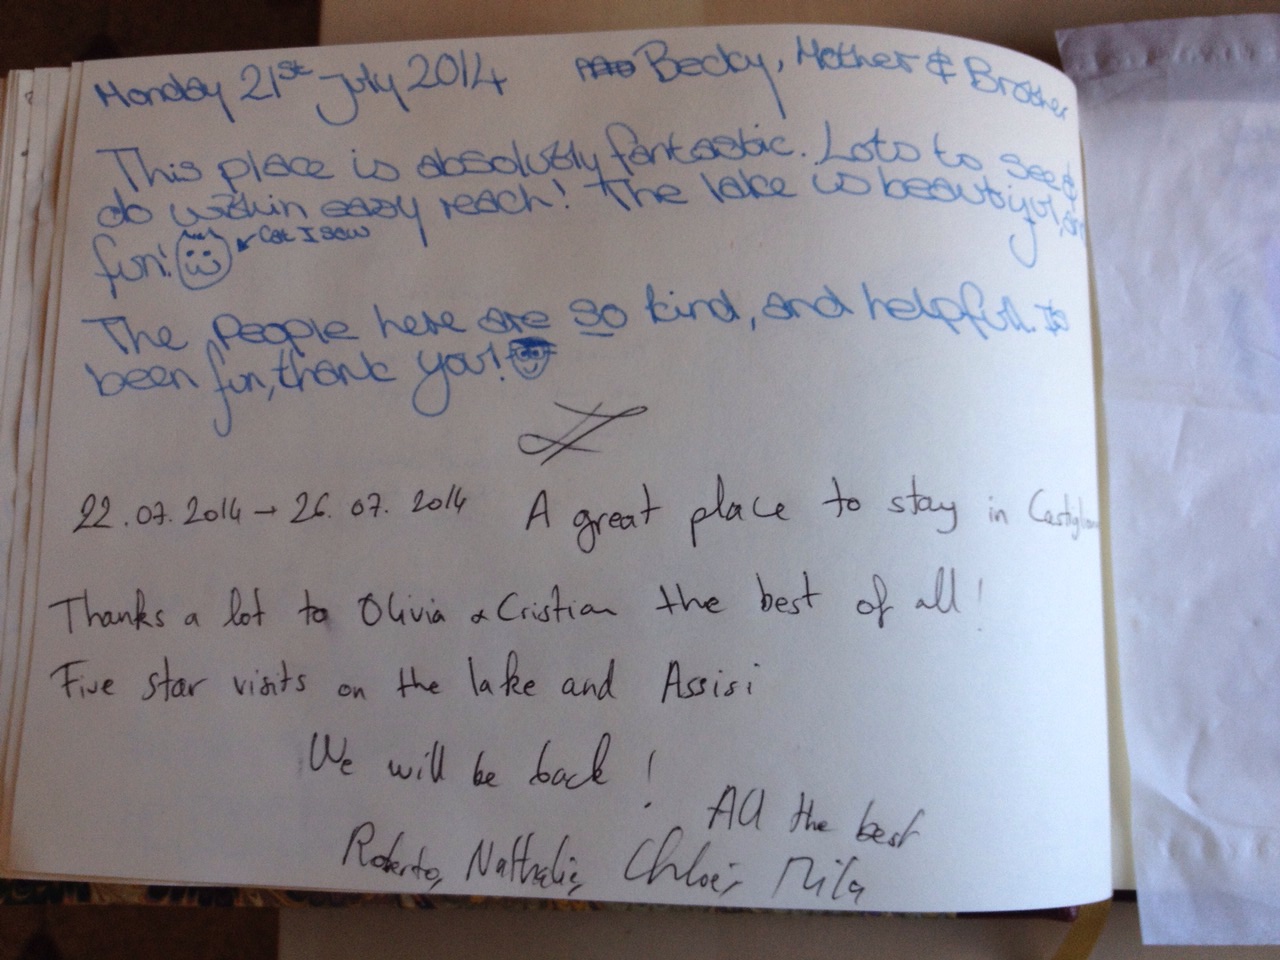 Monday 21st July 2014 Becky, Mother & Brother
This place is absolutly fantastic. Lots to see &
do within easy reach! The lake is beautiful,
fun! Cat I saw
The people here are so kind, and helpful. Its
been fun, thank you!
22.07.2014 → 26.07.2014 A great place to stay in
Thanks a lot to Olivia & Cristian the best of all!
Five star visits on the lake and Assisi
We will be back!
All the best
Roberto, Nathalie, Chloé, Mila